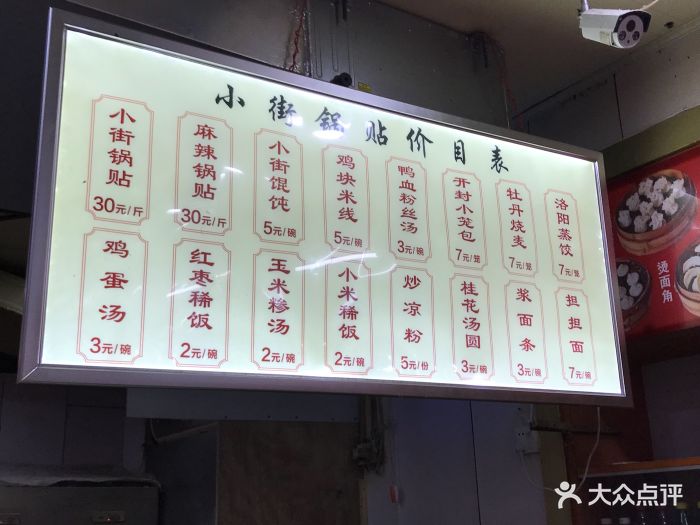 小街锅贴价目表
小街锅贴
30元/斤
麻辣锅贴
30元/斤
小街馄饨
5元/碗
鸡块米线
5元/碗
鸭血粉丝汤
3元/碗
开封小笼包
7元/笼
牡丹烧麦
7元/笼
洛阳蒸饺
7元/笼
鸡蛋汤
3元/碗
红枣稀饭
2元/碗
玉米糁汤
2元/碗
小米稀饭
2元/碗
炒凉粉
5元/份
桂花汤圆
3元/碗
浆面条
3元/碗
担担面
7元/碗
烫面角
大众点评